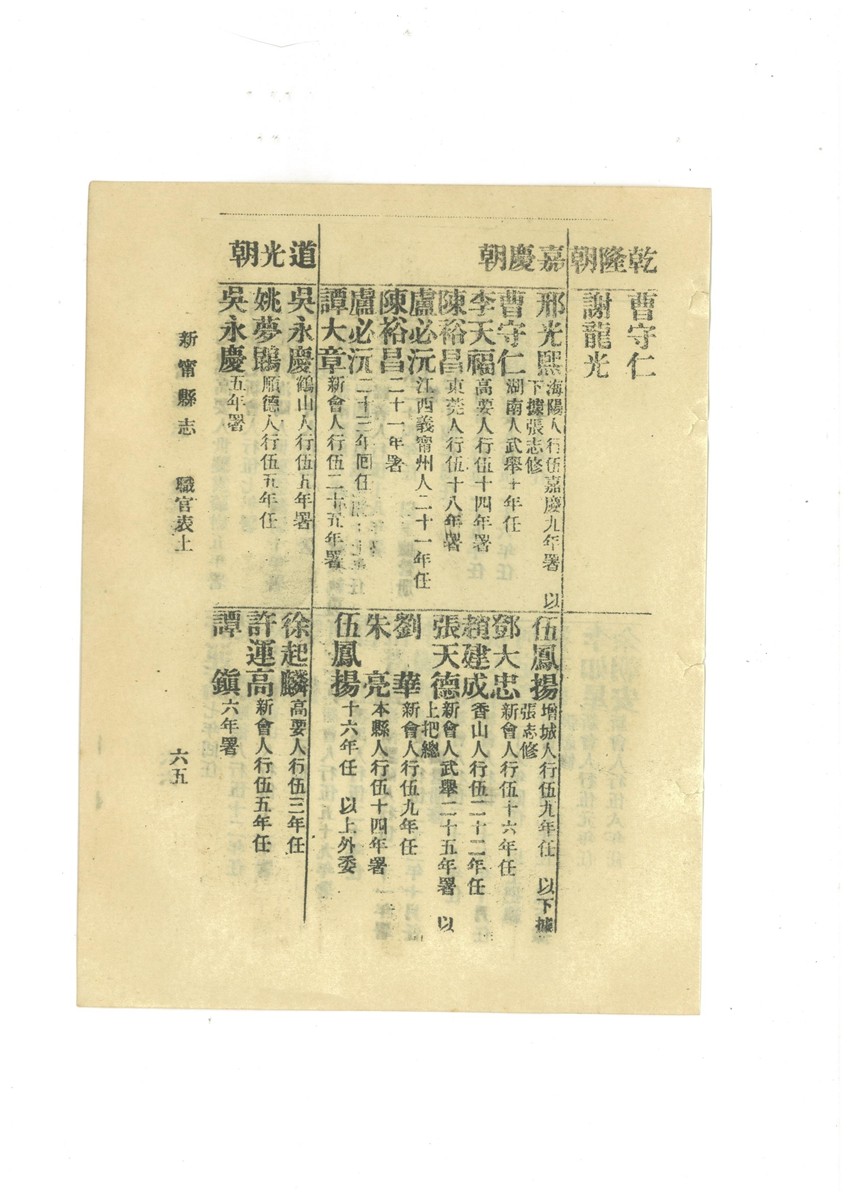 乾隆朝
曹守仁
謝龍光
嘉慶朝
邢光熙 海陽人行伍嘉慶九年署 以下據張志修
曹守仁 湖南人武舉十年任
李天福 高要人行伍十四年署
陳裕昌 東莞人行伍十八年署
盧必沅 江西義甯州人二十一年任
陳裕昌 二十一年署
盧必沅 二十三年回任
譚大章 新會人行伍二十五年署
伍鳳揚 增城人行伍九年任 以下據張志修
鄧大忠 新會人行伍十六年任
趙建成 香山人行伍二十二年任
張天德 新會人武舉二十五年署 以上把總
劉華 新會人行伍九年任
朱亮 本縣人行伍十四年署
伍鳳揚 十六年任 以上外委
道光朝
吳永慶 鶴山人行伍五年署
姚夢鵾 順德人行伍五年任
吳永慶 五年署
徐起麟 高要人行伍三年任
許運高 新會人行伍五年任
譚鎮 六年署
新甯縣志 職官表上
六五